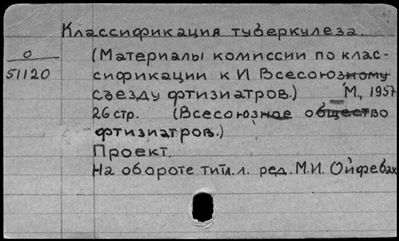 Классификация туберкулеза.
О
51120
(Материалы комиссии по клас-
сификации к И Всесоюзному
съезду фтизиатров.) М., 1957
26 стр. (Всесоюзное общество
фтизиатров.)
Проект.
На обороте тит. л. ред. М.И. Ойфебах